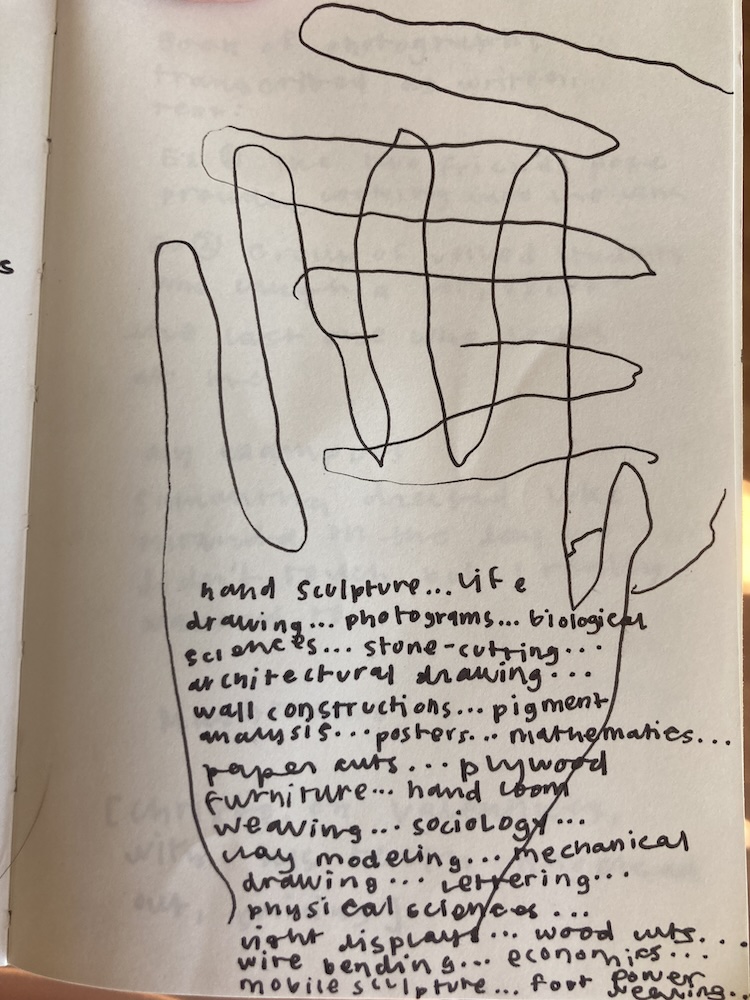 s
hand sculpture... life
drawing... photograms... biological
sciences... stone-cutting...
architectural drawing...
wall constructions... pigment
analysis... posters... mathematics...
paper cuts... plywood
furniture... hand loom
weaving... sociology...
clay modeling... mechanical
drawing... lettering...
physical sciences...
light displays... wood cuts...
wire bending... economics...
mobile sculpture... foot power
weaving...